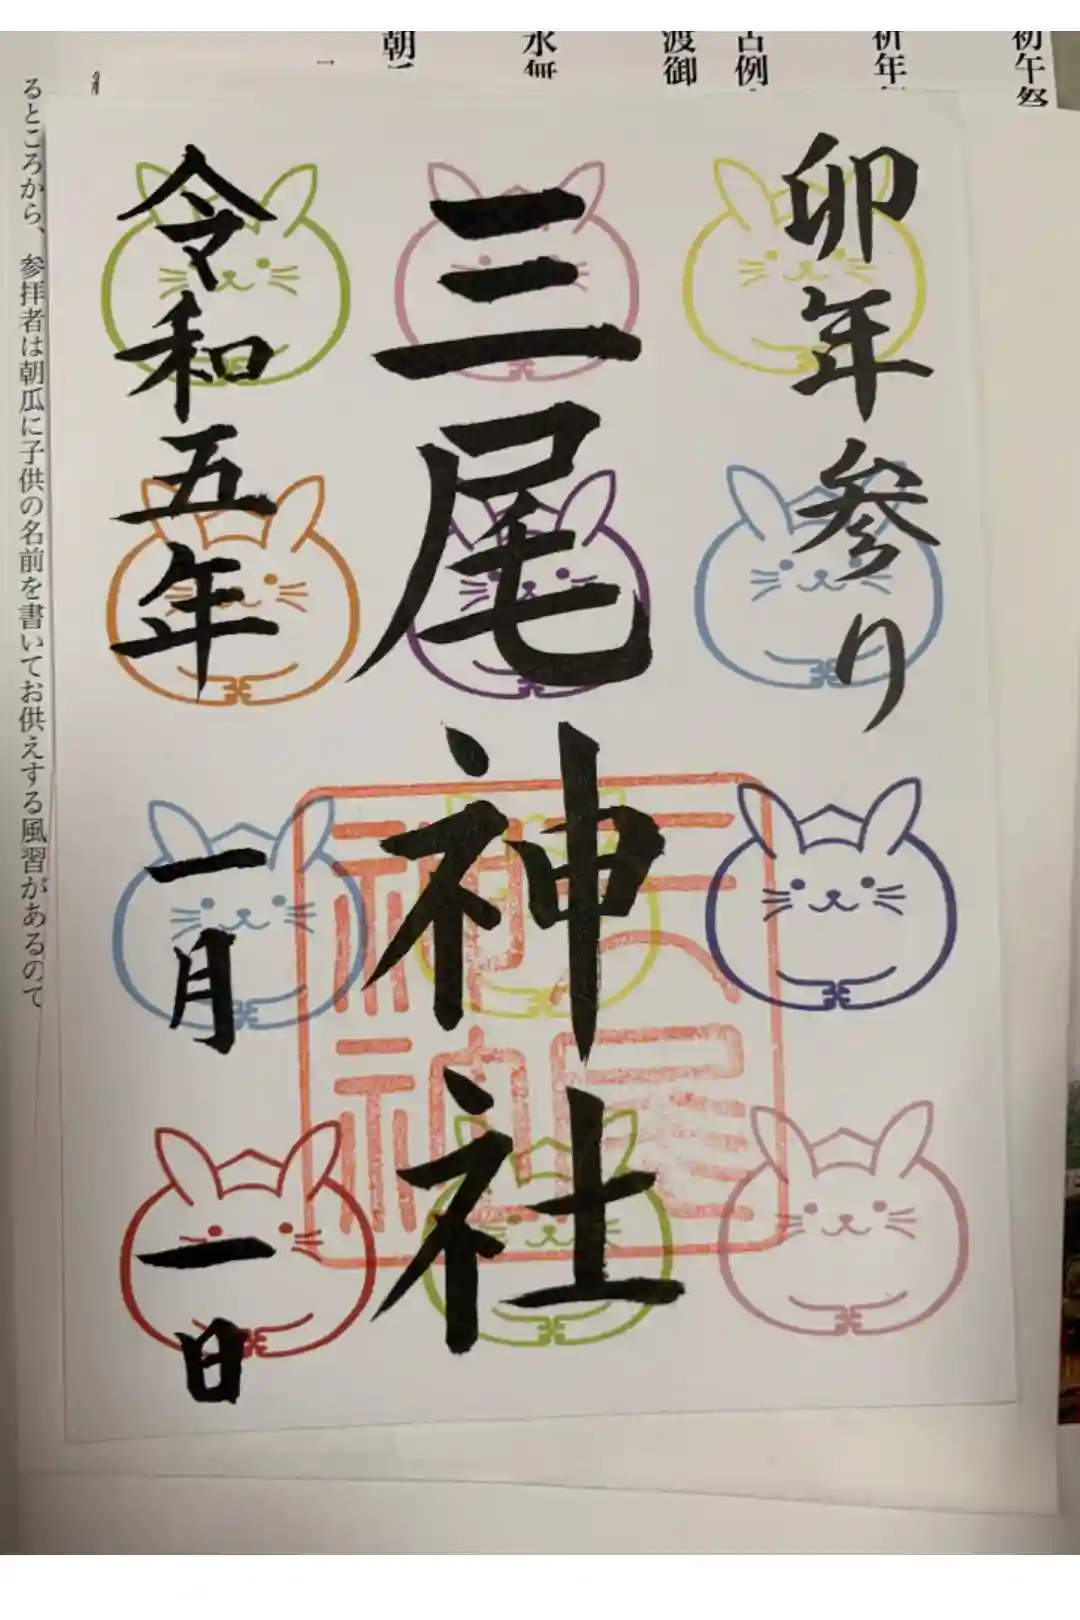 卯年参り
三尾神社
令和五年 一月一日
三尾神社
初午祭
祈年
古例
渡御
水無
朝
るところから、参拝者は朝瓜に子供の名前を書いてお供えする風習があるので